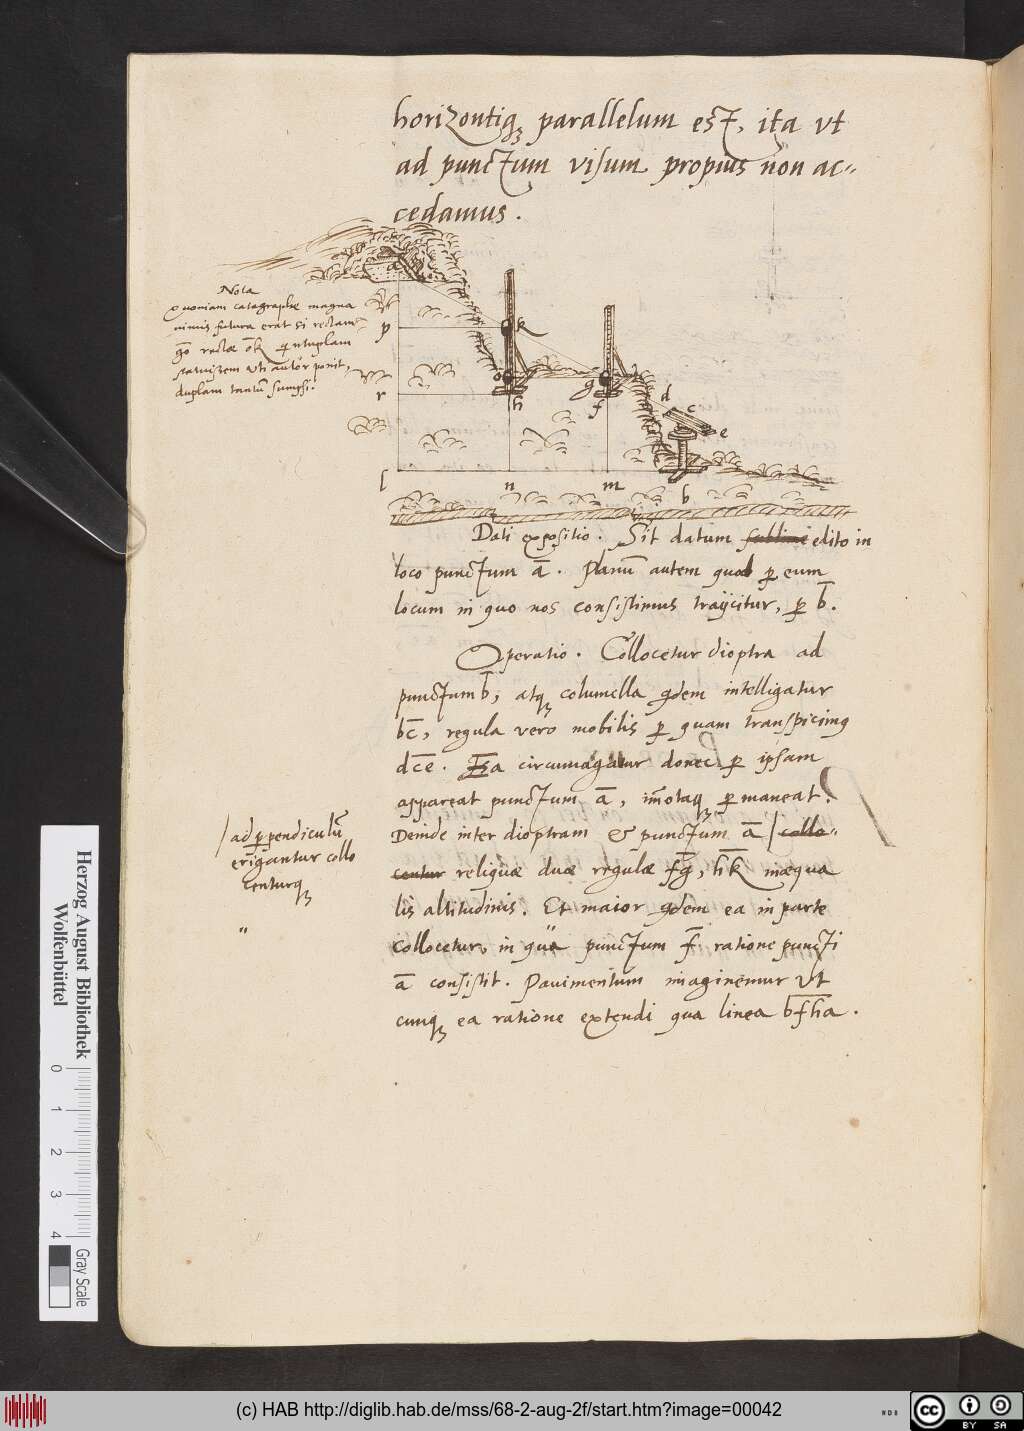 horizontiq₃ parallelum est, ita vt
ad punctum visum propius non ac=
cedamus.
Nota
Quoniam catagraphe magna
nimis futura erat si rectam
rectæ o̅k̅
statuissem vti autor ponit,
duplam tantũ sumpsi.
a
k
p
o
g
r
h
f
d
c
e
l
n
m
b
Dati expositio. Sit datum sublime edito in
loco punctum a̅. Planũ autem quod ꝑ eum
locum in quo nos consistimus traijcitur, ꝑ b̅.
Operatio. Collocetur dioptra ad
punctum b̅, atq₃ columella qdem intelligatur
b̅c̅, regula vero mobilis ꝑ quam transpicimꝰ
d̅c̅e̅. Ea circumagatur donec ꝑ ipsam
appareat punctum a̅, im̃otaq₃ ꝑmaneat.
Deinde inter dioptram & punctum a̅ / collo=
centur reliquæ duæ regulæ f̅g̅, h̅k̅ inæqua
lis altitudinis. Et maior qdem ea in parte
collocetur, in qua punctum f̅ ratione puncti
a̅ consistit. Pauimentum imaginemur vt
cunq₃ ea ratione extendi qua linea b̅f̅h̅a̅.
/ ad ꝑpendiculũ
erigantur collo
centurq₃
"
Herzog August Bibliothek
Wolfenbüttel
0 1 2 3 4
Gray Scale
(c) HAB http://diglib.hab.de/mss/68-2-aug-2f/start.htm?image=00042
NDB
cc
BY SA